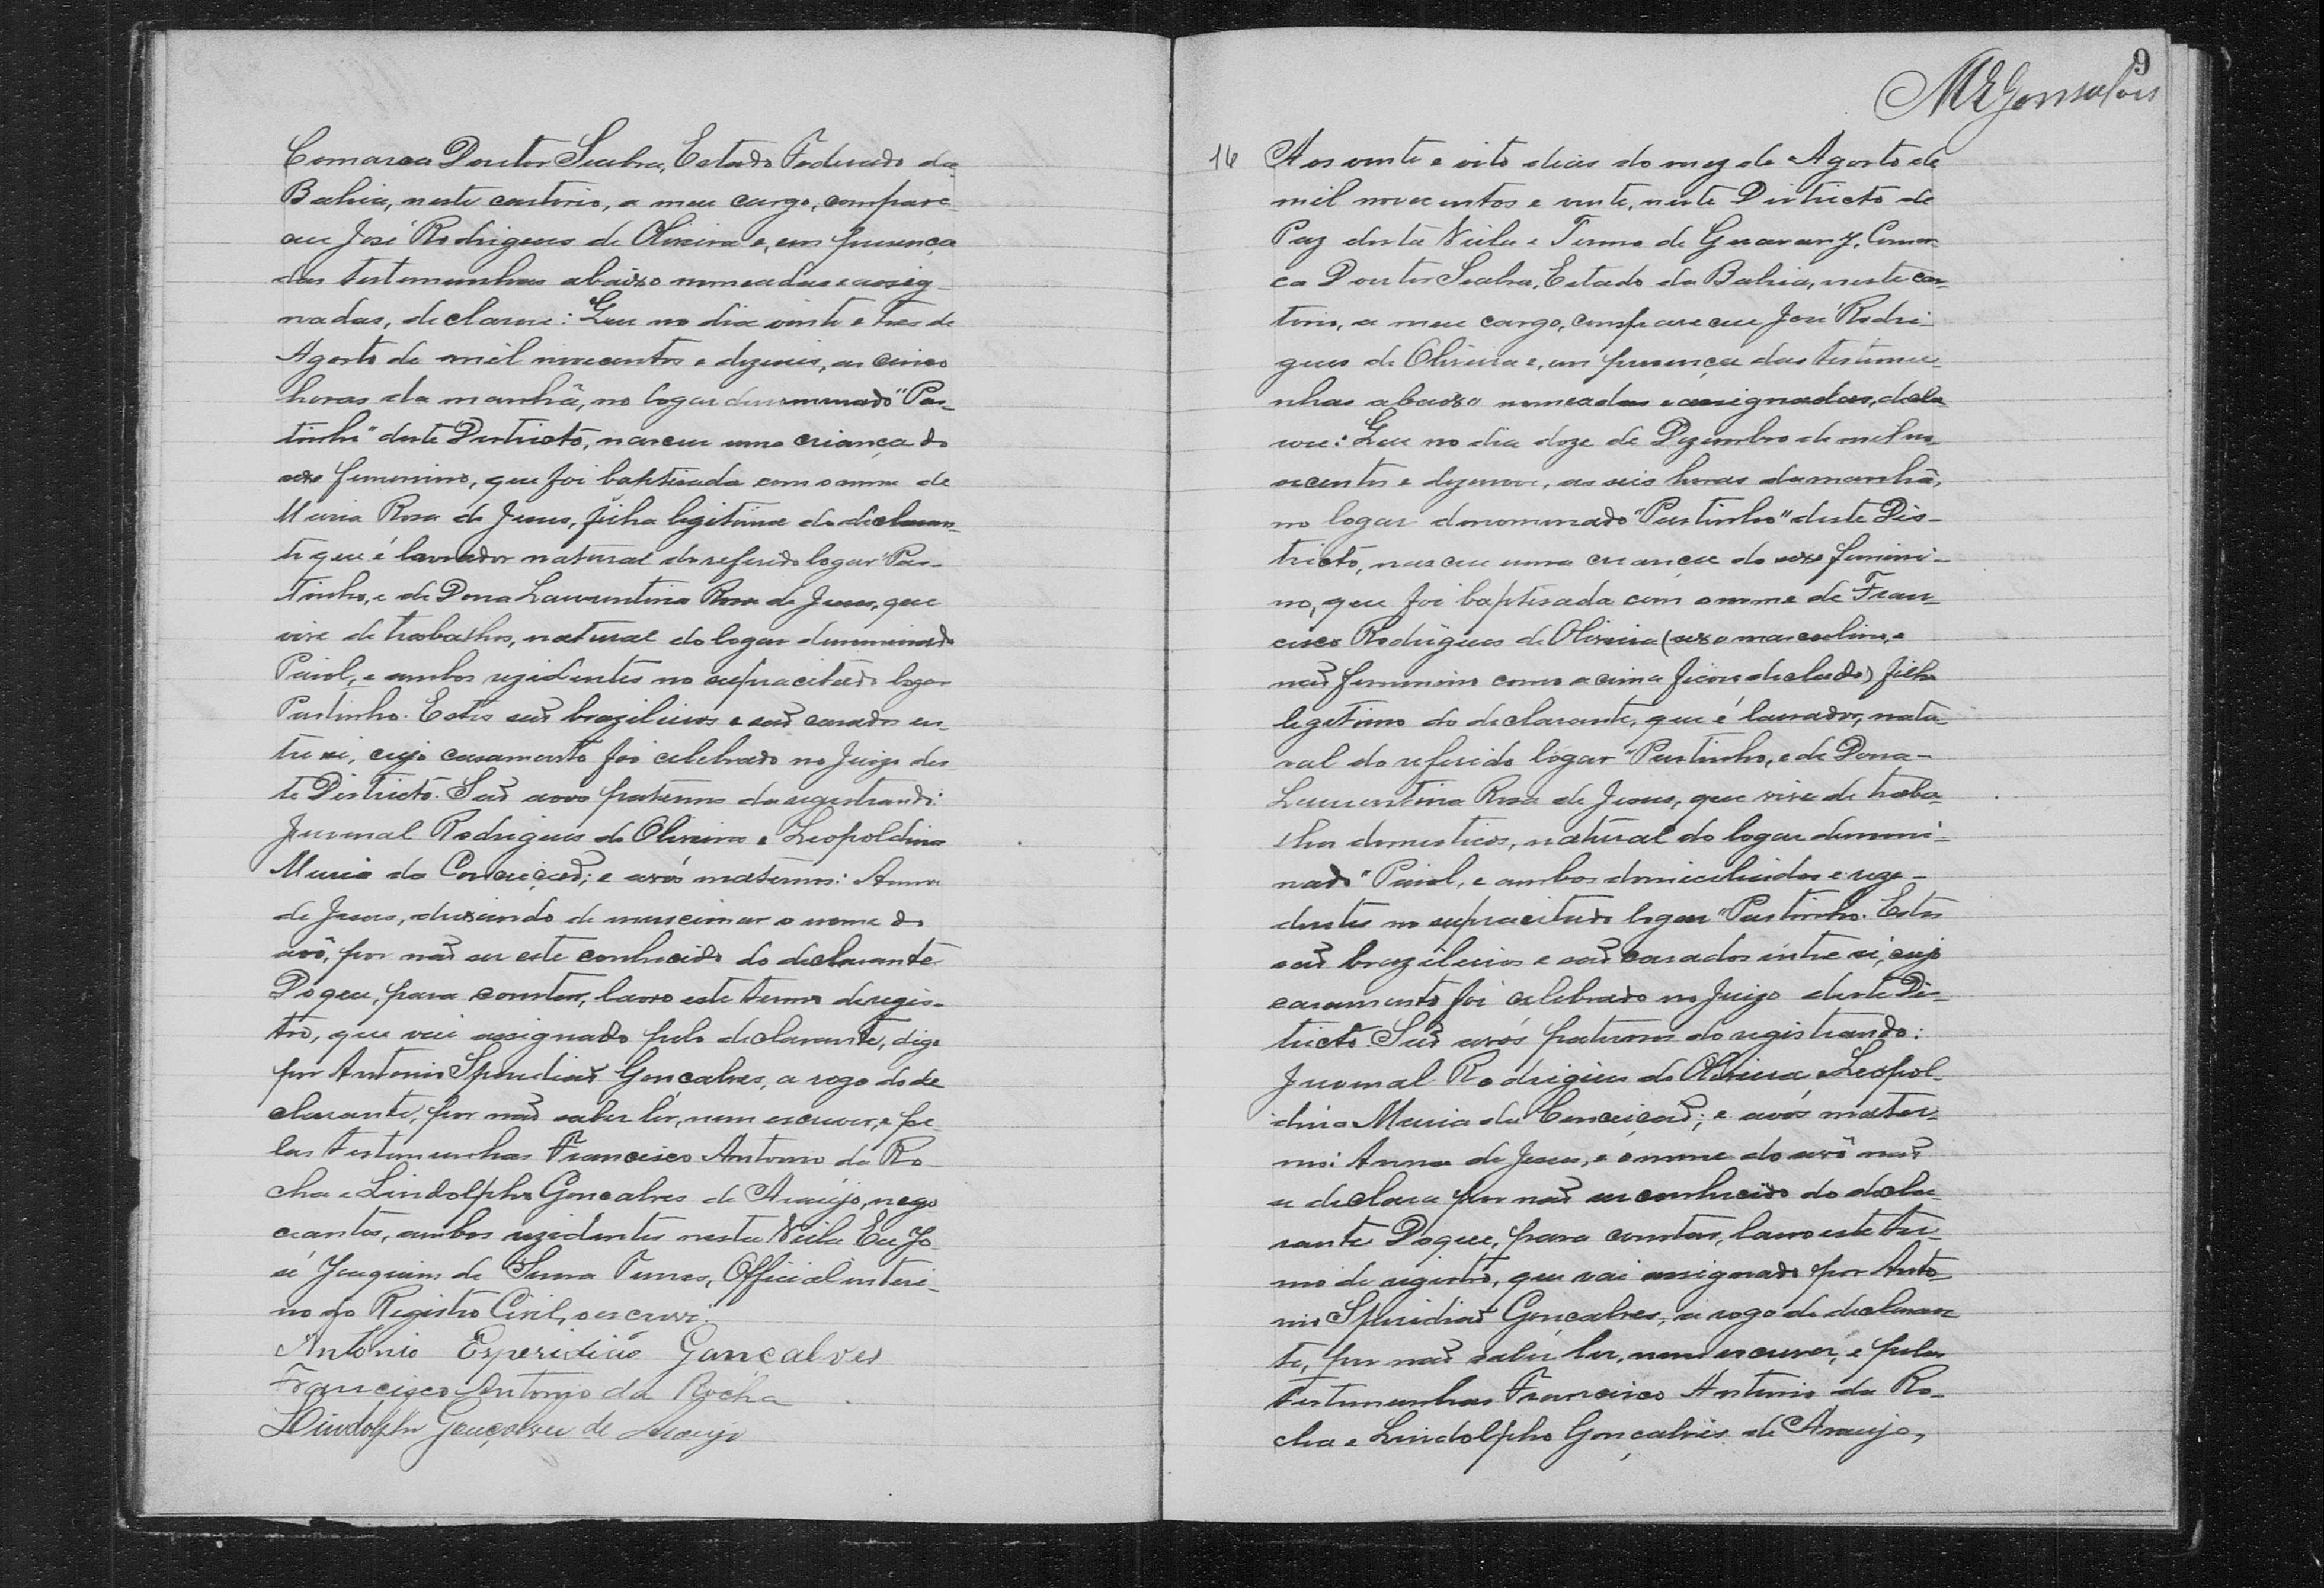 Comarca Doutor Seabra, Estado Federado da
Bahia, neste cartorio, a meu cargo, compare-
ceu José Rodrigues de Oliveira e, em presença
das testemunhas abaixo nomeadas e assig-
nadas, declarou: Que no dia vinte e tres de
Agosto de mil novecentos e dezeseis, as cinco
horas da manhã, no logar denominado "Pas-
tinho" deste Districto, nasceu uma criança do
sexo femenino, que foi baptisada com o nome de
Maria Rosa de Jesus, filha legitima do declaran-
te que é lavrador natural do referido logar "Pas-
tinho, e de Dona Laurentina Rosa de Jesus, que
vive de trabalhos, natural do logar denominado
Paiol, e ambos rezidentes no supracitado logar
Pastinho. Estes saõ brazileiros e saõ casados en-
tre si, cujo casamento foi celebrado no Juizo des
te Districto. Saõ avos paternos da registrando:
Juvenal Rodrigues de Oliveira e Leopoldina
Maria da Conceiçaõ; e avós maternos: Anna
de Jesus, deixando de mencionar o nome do
avô, por naõ ser este conhecido do declarante
Do que, para constar, lavro este termo de regis-
tro, que vai assignado pelo declarante, digo
por Antonio Speridiaõ Goncalves, a rogo do de
clarante, por naõ saber lêr, nem escrever, e pe-
las testemunhas Francisco Antonio da Ro-
cha e Lindolpho Goncalves de Araujo, nego
ciantes, ambos rezidentes nesta Villa Eu Jo-
sé Joaquim de Senna Funes, Official interi-
no do Registro Civil, o escrevi.
Antonio Esperidião Goncalves
Francisco Antonio da Rocha
Lindolpho Gonçalves de Araujo
9
MEGonsalves
16 Aos vinte e oito dias do mez de Agosto de
mil novecentos e vinte, neste Districto de
Paz desta Villa e Termo de Guarany, Comar-
ca Doutor Seabra, Estado da Bahia, neste car-
torio, a meu cargo, compareceu José Rodri-
gues de Oliveira e, em presença das testemu-
nhas abaixo nomeadas e assignadas, decla-
rou: Que no dia doze de Dezembro de mil no-
vecentos e dezenove, as seis horas da manhã,
no logar denominado "Pastinho" deste Dis-
tricto, nasceu uma criança do sexo femini-
no, que foi baptisada com o nome de Fran-
cisco Rodrigues de Oliveira (sexo masculino, e
naõ femenino como acima ficou declado) filho
legitimo do declarante, que é lavrador, natu-
ral do referido logar "Pastinho, e de Dona-
Laurentina Rosa de Jesus, que vive de traba-
lhos domesticos, natural do logar denomi-
nado "Paiol, e ambos domiciliados e rezi-
dentes no supracitado logar "Pastinho. Estes
saõ brazileiros e saõ casados entre si, cujo
casamento foi celebrado no Juizo deste Dis-
tricto. Saõ avós paternos do registrando:
Juvenal Rodrigues de Oliveira e Leopol-
dina Maria da Conceiçaõ; e avós mater-
nos: Anna de Jesus, e o nome do avô naõ
se declara por naõ ser conhecido do decla-
rante Do que, para constar, lavro este ter-
mo de registro, que vai assignado por Anto-
nio Speridiaõ Gonçalves, a rogo do declaran
te, por naõ saber ler, nem escrever, e pelas
testemunhas Francisco Antonio da Ro-
cha e Lindolpho Gonçalves de Araujo,